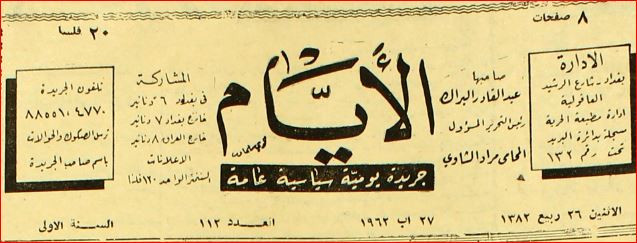 ٨ صفحات
٢٠ فلسا
الادارة
بغداد - شارع الرشيد
العاقولية
ادارة مطبعة الحرية
سجلت بدائرة البريد
تحت رقم ١٣٢
صاحبها
عبدالقادر البراك
رئيس التحرير المسؤول
المحامي مراد الشاوي
الأيام
جريدة يومية سياسية عامة
المشاركة
في بغداد ٦ دنانير
خارج بغداد ٧ دنانير
خارج العراق ٨ دنانير
الاعلانات
السنتمتر الواحد ١٢٠ فلسا
تلفون الجريدة
٨٨٥٥١-٤٧٧٠
ترسل الصكوك والحوالات
باسم صاحب الجريدة
الاثنين ٢٦ ربيع ١٣٨٢
٢٧ اب ١٩٦٢
العدد ١١٣
السنة الاولى